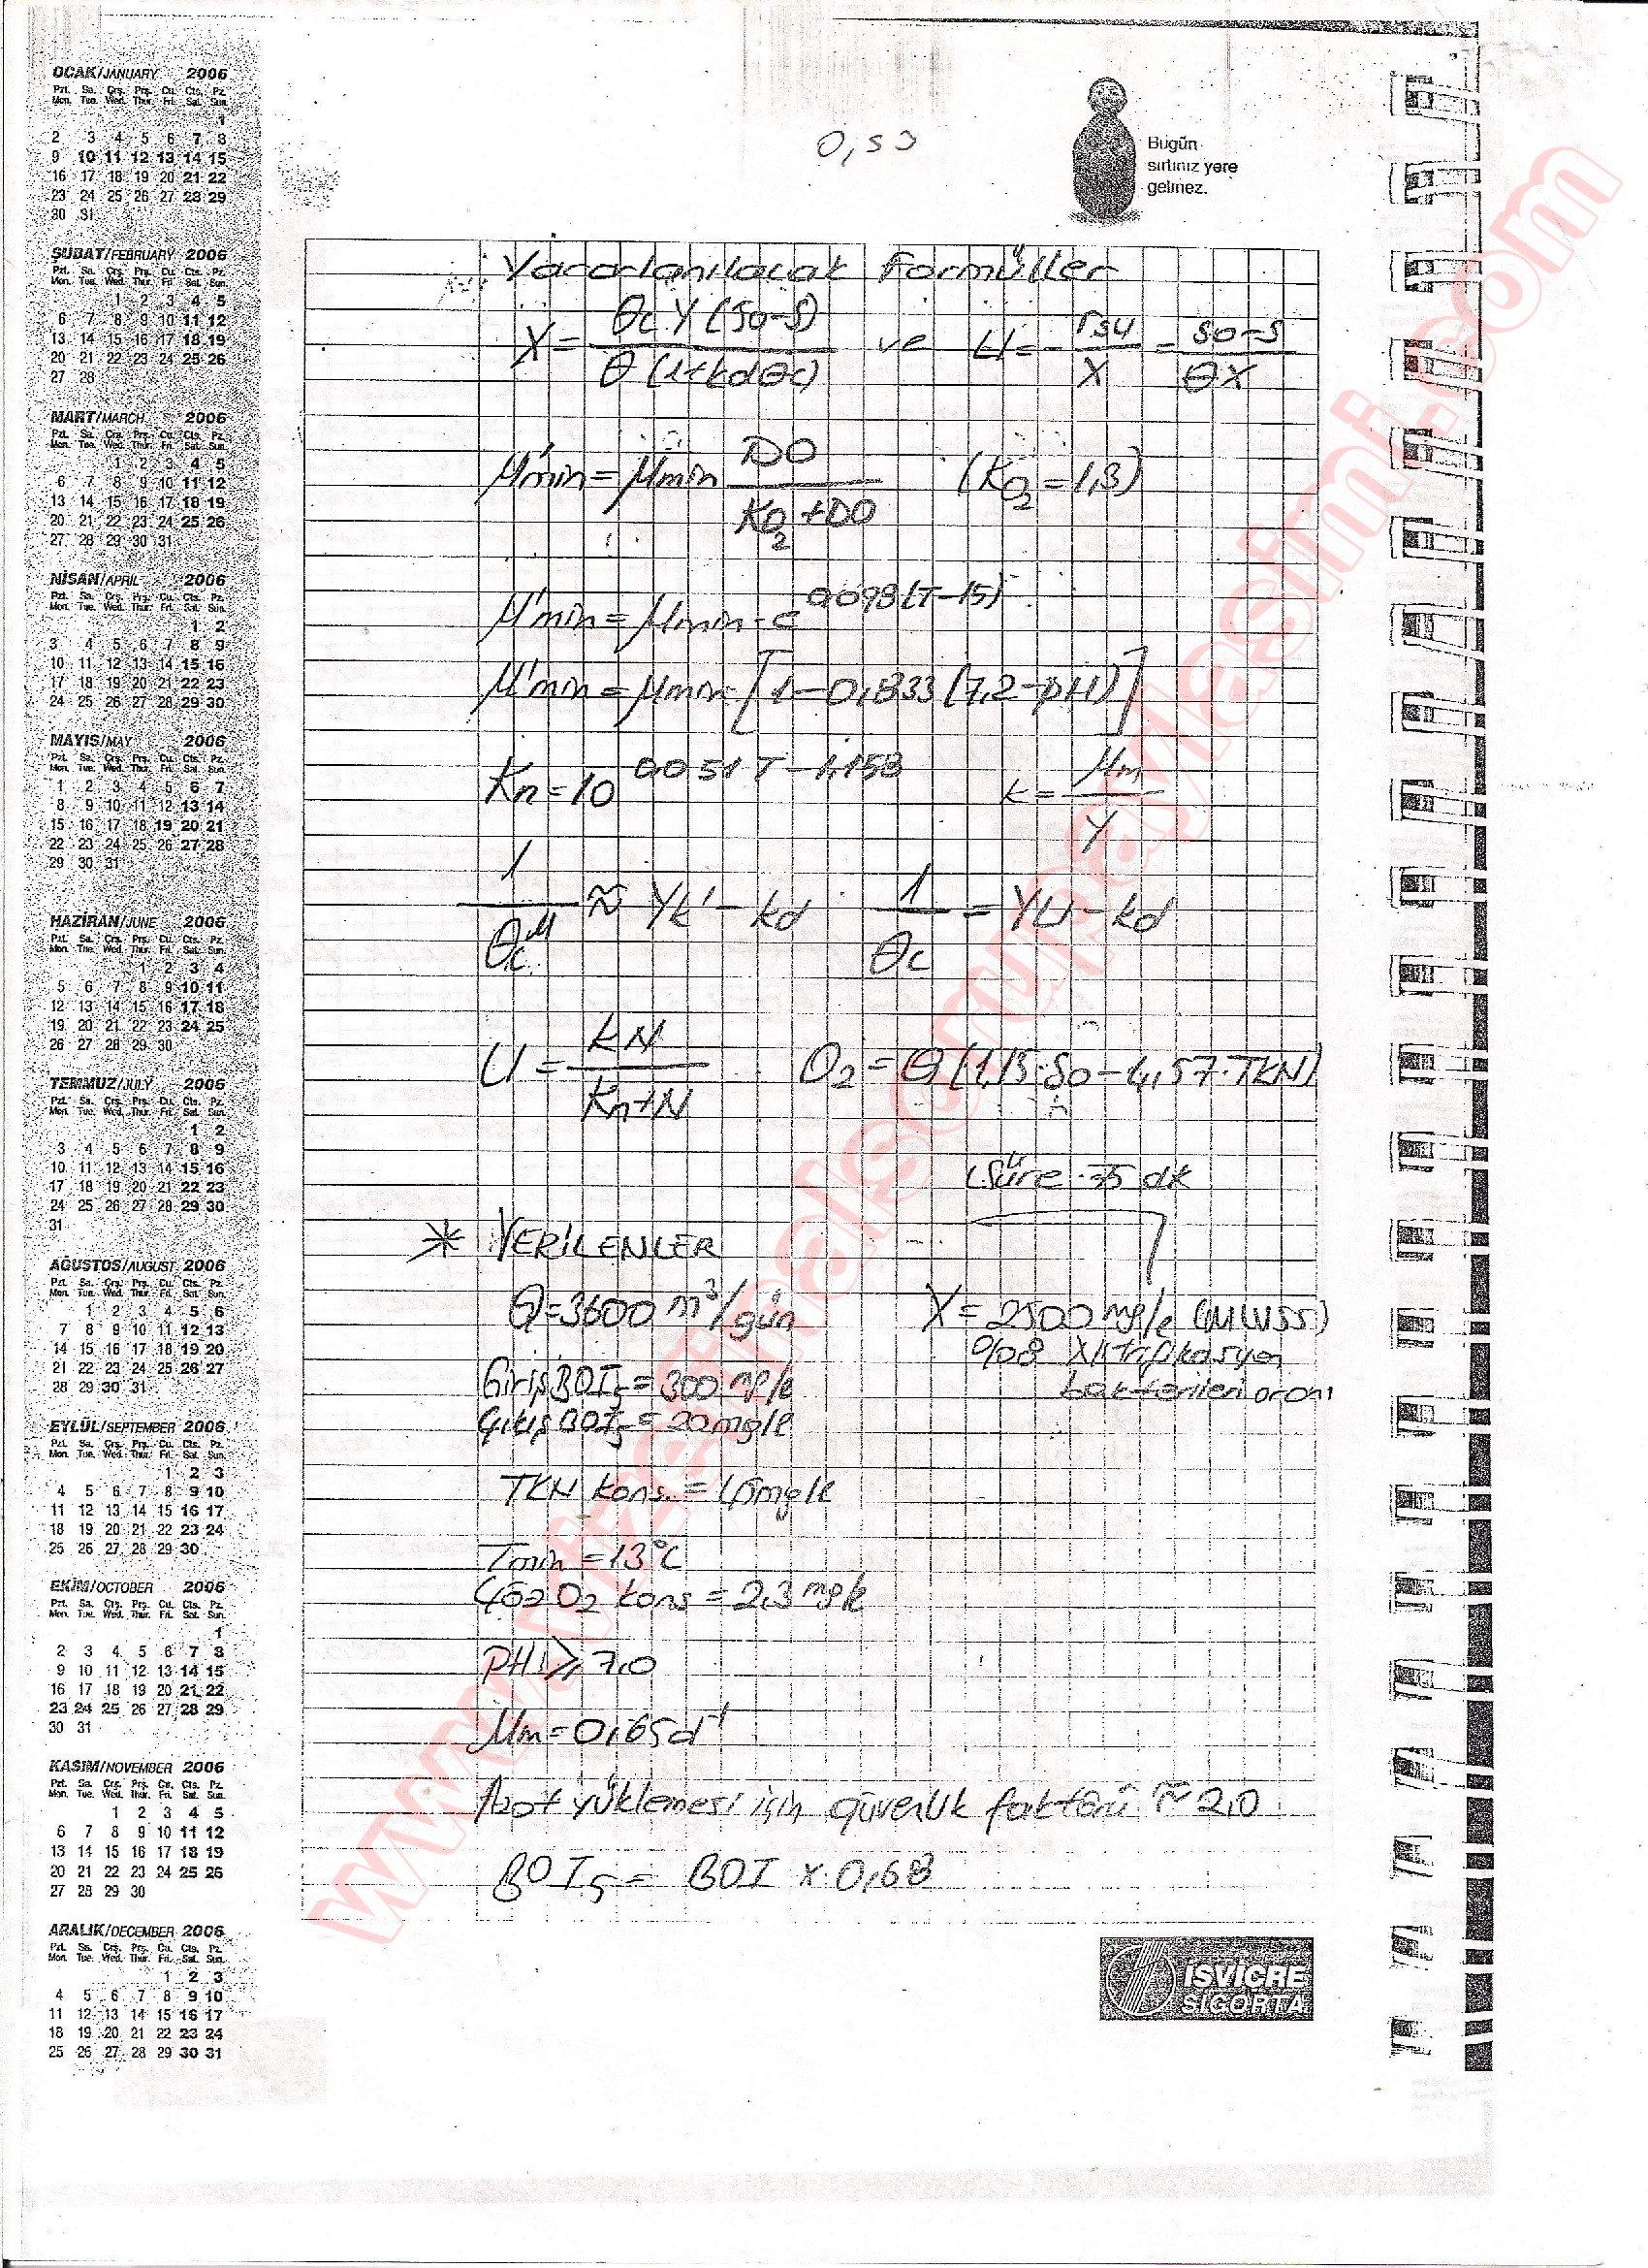 OCAK/JANUARY 2006
Pzt. Sa. Çrş. Prş. Cu. Cts. Pz.
Mon. Tue. Wed. Thur. Fri. Sat. Sun.
1
2 3 4 5 6 7 8
9 10 11 12 13 14 15
16 17 18 19 20 21 22
23 24 25 26 27 28 29
30 31
ŞUBAT/FEBRUARY 2006
Pzt. Sa. Çrş. Prş. Cu. Cts. Pz.
Mon. Tue. Wed. Thur. Fri. Sat. Sun.
1 2 3 4 5
6 7 8 9 10 11 12
13 14 15 16 17 18 19
20 21 22 23 24 25 26
27 28
MART/MARCH 2006
Pzt. Sa. Çrş. Prş. Cu. Cts. Pz.
Mon. Tue. Wed. Thur. Fri. Sat. Sun.
1 2 3 4 5
6 7 8 9 10 11 12
13 14 15 16 17 18 19
20 21 22 23 24 25 26
27 28 29 30 31
NİSAN/APRIL 2006
Pzt. Sa. Çrş. Prş. Cu. Cts. Pz.
Mon. Tue. Wed. Thur. Fri. Sat. Sun.
1 2
3 4 5 6 7 8 9
10 11 12 13 14 15 16
17 18 19 20 21 22 23
24 25 26 27 28 29 30
MAYIS/MAY 2006
Pzt. Sa. Çrş. Prş. Cu. Cts. Pz.
Mon. Tue. Wed. Thur. Fri. Sat. Sun.
1 2 3 4 5 6 7
8 9 10 11 12 13 14
15 16 17 18 19 20 21
22 23 24 25 26 27 28
29 30 31
HAZİRAN/JUNE 2006
Pzt. Sa. Çrş. Prş. Cu. Cts. Pz.
Mon. Tue. Wed. Thur. Fri. Sat. Sun.
1 2 3 4
5 6 7 8 9 10 11
12 13 14 15 16 17 18
19 20 21 22 23 24 25
26 27 28 29 30
TEMMUZ/JULY 2006
Pzt. Sa. Çrş. Prş. Cu. Cts. Pz.
Mon. Tue. Wed. Thur. Fri. Sat. Sun.
1 2
3 4 5 6 7 8 9
10 11 12 13 14 15 16
17 18 19 20 21 22 23
24 25 26 27 28 29 30
31
AĞUSTOS/AUGUST 2006
Pzt. Sa. Çrş. Prş. Cu. Cts. Pz.
Mon. Tue. Wed. Thur. Fri. Sat. Sun.
1 2 3 4 5 6
7 8 9 10 11 12 13
14 15 16 17 18 19 20
21 22 23 24 25 26 27
28 29 30 31
EYLÜL/SEPTEMBER 2006
Pzt. Sa. Çrş. Prş. Cu. Cts. Pz.
Mon. Tue. Wed. Thur. Fri. Sat. Sun.
1 2 3
4 5 6 7 8 9 10
11 12 13 14 15 16 17
18 19 20 21 22 23 24
25 26 27 28 29 30
EKİM/OCTOBER 2006
Pzt. Sa. Çrş. Prş. Cu. Cts. Pz.
Mon. Tue. Wed. Thur. Fri. Sat. Sun.
1
2 3 4 5 6 7 8
9 10 11 12 13 14 15
16 17 18 19 20 21 22
23 24 25 26 27 28 29
30 31
KASIM/NOVEMBER 2006
Pzt. Sa. Çrş. Prş. Cu. Cts. Pz.
Mon. Tue. Wed. Thur. Fri. Sat. Sun.
1 2 3 4 5
6 7 8 9 10 11 12
13 14 15 16 17 18 19
20 21 22 23 24 25 26
27 28 29 30
ARALIK/DECEMBER 2006
Pzt. Sa. Çrş. Prş. Cu. Cts. Pz.
Mon. Tue. Wed. Thur. Fri. Sat. Sun.
1 2 3
4 5 6 7 8 9 10
11 12 13 14 15 16 17
18 19 20 21 22 23 24
25 26 27 28 29 30 31
Bugün
sırtınız yere
gelmez.
Yararlanılacak Formüller
X = θc Y (So-S) / θ (1+kdθc) ve U = - rsu / X = So-S / θX
μ'min = μmin DO / KO2 + DO (KO2 = 1,3)
μ'min = μmin . e^0,098(T-15)
μ'min = μmin [1-0,833(7,2-pH)]
Kn = 10^0,051T-1,158 k = μm / Y
1 / θc^M ≈ Yk' - kd 1 / θc = YU - kd
U = kN / Kn+N O2 = Q (1,15.So - 4,57.TKN)
(Süre 75 dk
* VERİLENLER
Q = 3600 m³/gün X = 2500 mg/l (MLVSS)
%08 Nitrifikasyon
bakterileri oranı
Giriş BOI5 = 300 mg/l
Çıkış BOI5 = 20 mg/l
TKN kons. = 45 mg/l
Tmin = 13°C
Çöz O2 kons = 2,3 mg/l
PH ≥ 7,0
μm = 0,65 d⁻¹
Azot yüklemesi için güvenlik faktörü ≈ 2,0
BOI5 = BOI x 0,68
İSVİÇRE
SİGORTA